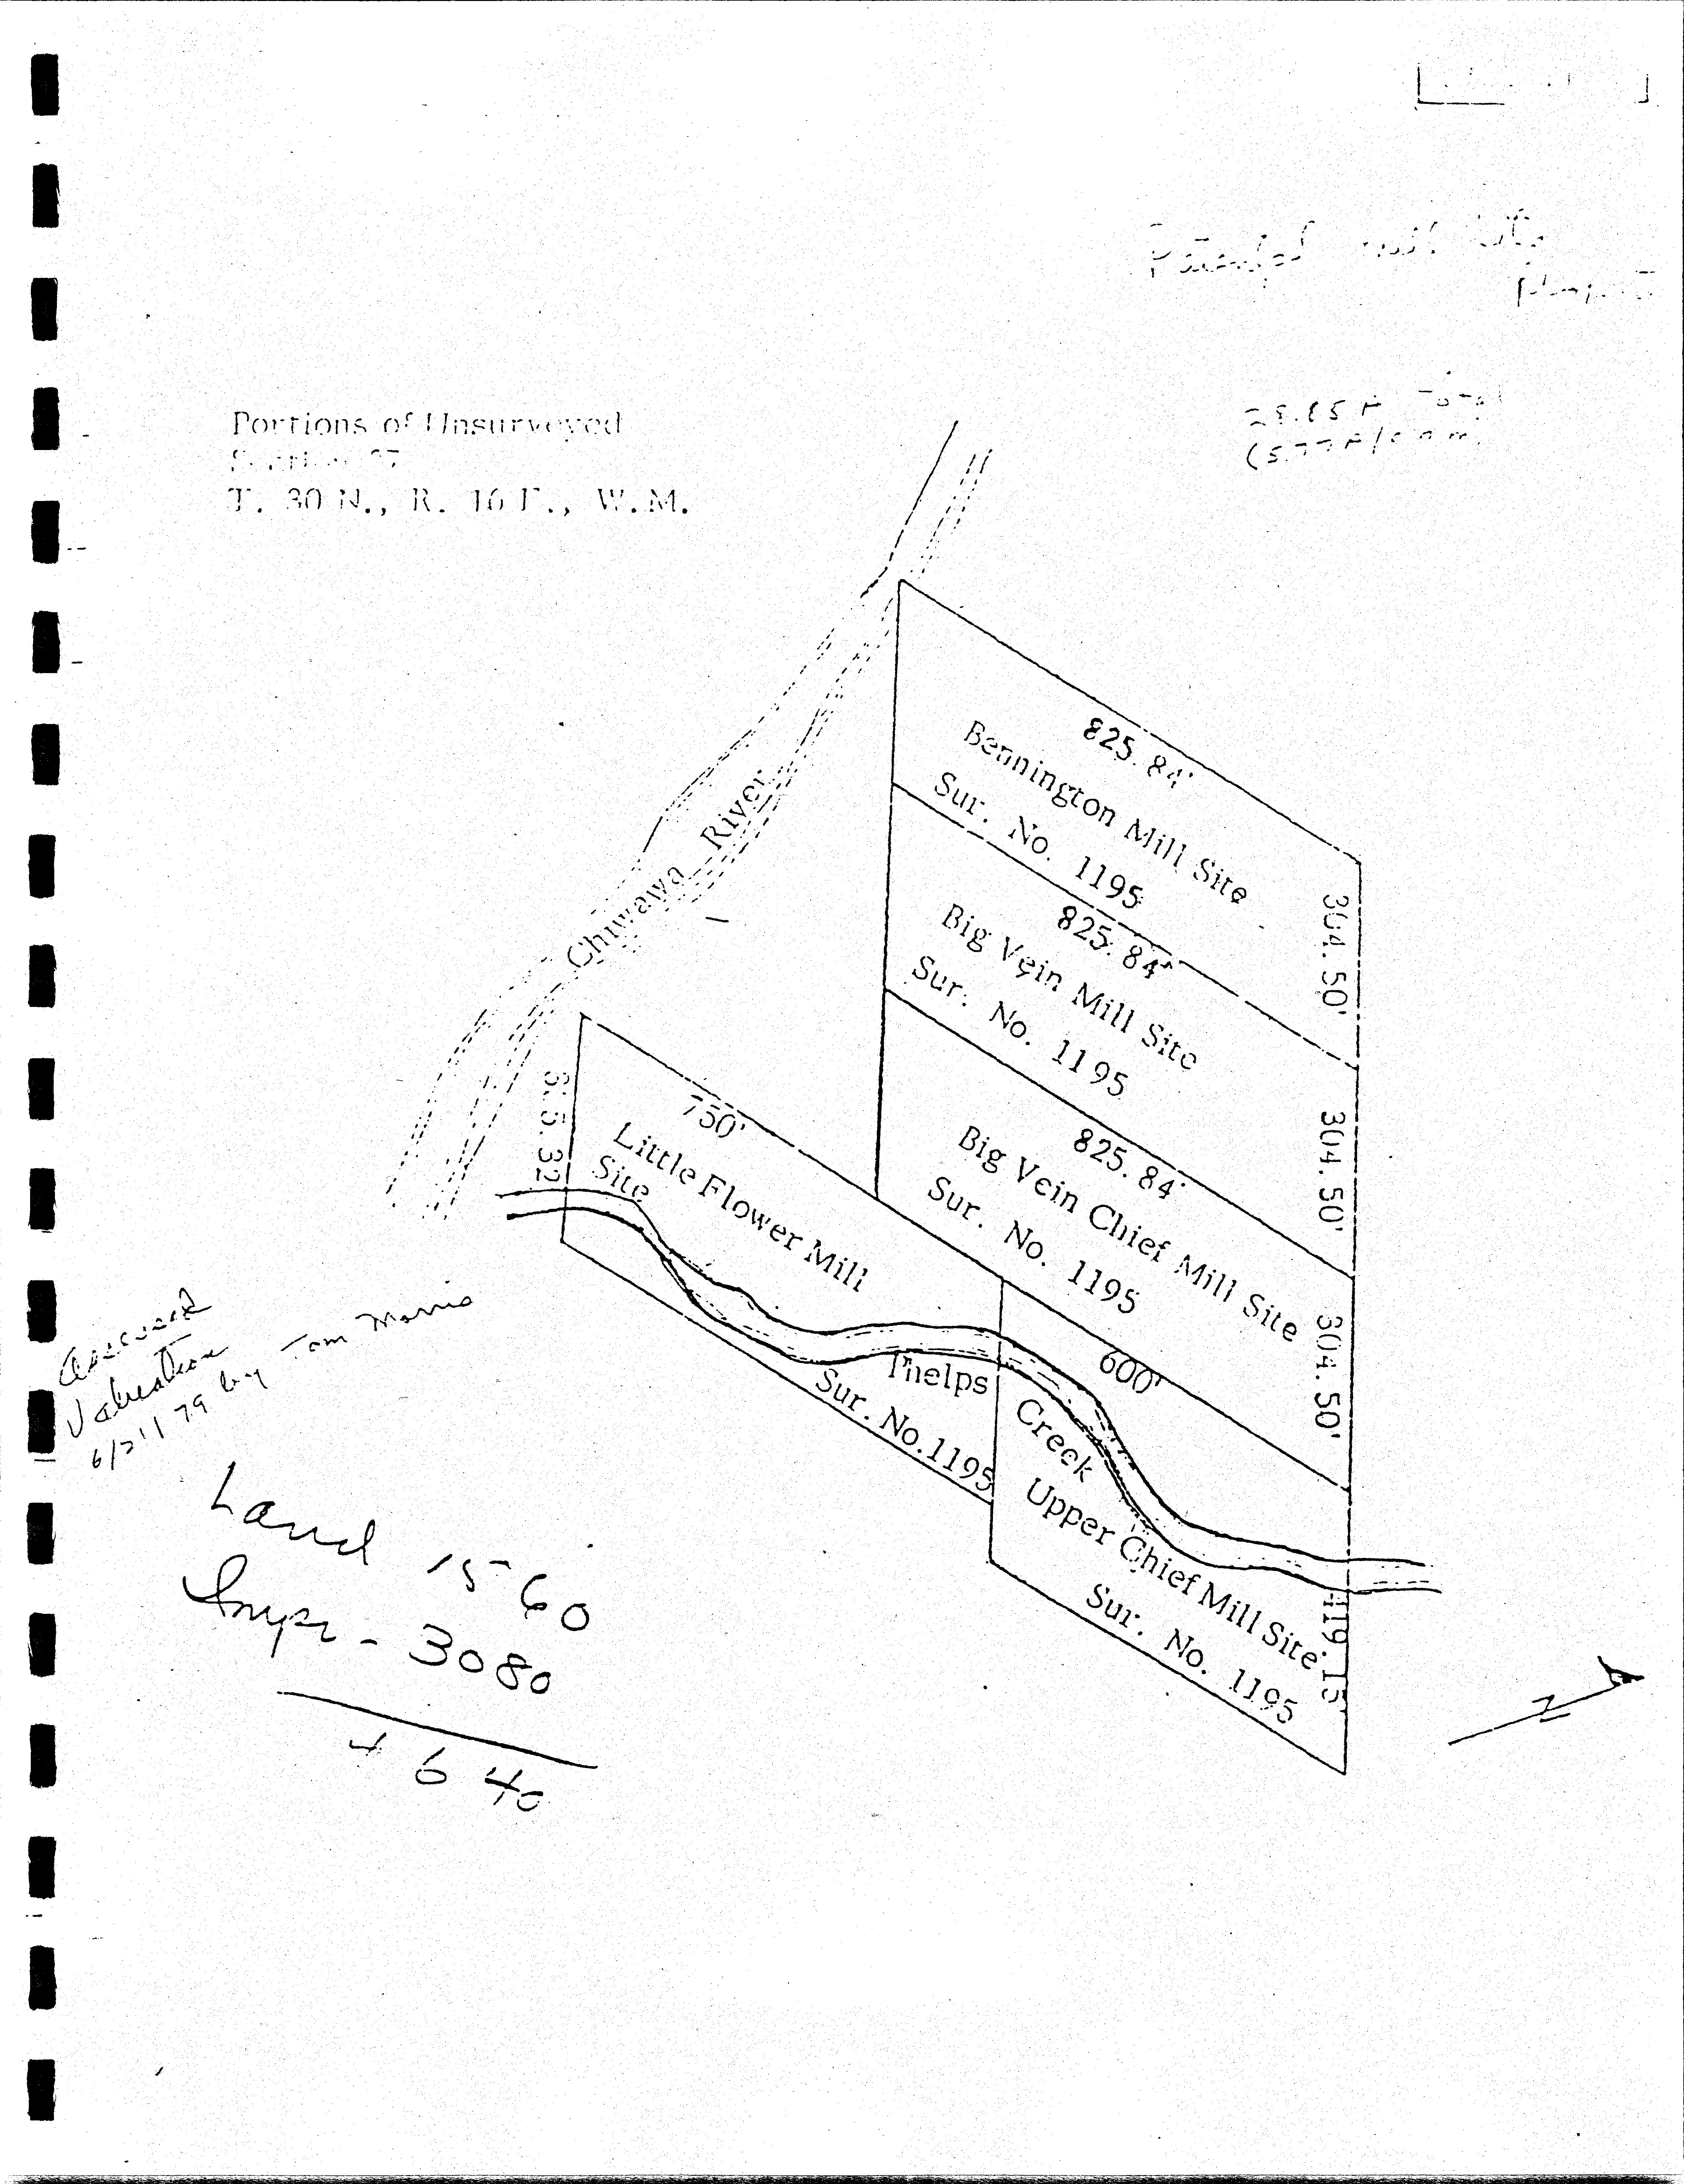 Portions of Unsurveyed
T. 30 N., R. 16 E., W.M.
Total
Chiwawa River
825.84'
Bennington Mill Site
Sur. No. 1195
304.50'
825.84'
Big Vein Mill Site
Sur. No. 1195
304.50'
825.84'
Big Vein Chief Mill Site
Sur. No. 1195
304.50'
750'
Little Flower Mill
Site
Sur. No. 1195
600'
Phelps
Creek
Upper Chief Mill Site
Sur. No. 1195
N
Assessed
Valuation
by Tom Morris
Land 1560
Impr - 3080
4640